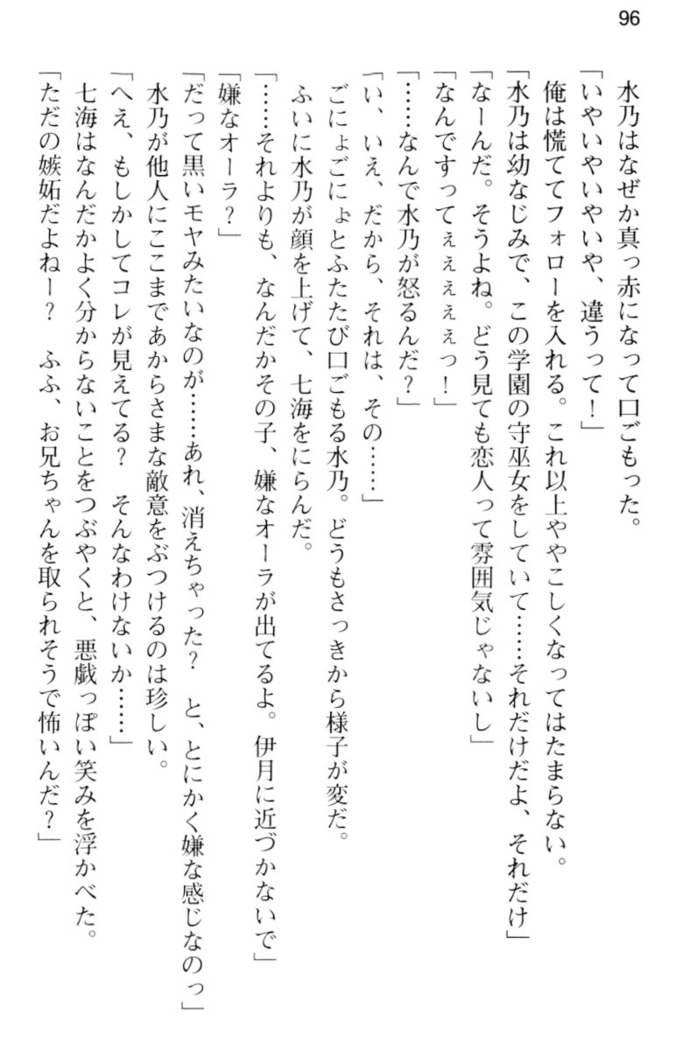 96
水乃はなぜか真っ赤になって口ごもった。
「いやいやいやいや、違うって！」
俺は慌ててフォローを入れる。これ以上ややこしくなってはたまらない。
「水乃は幼なじみで、この学園の守巫女をしていて……それだけだよ、それだけ」
「なーんだ。そうよね。どう見ても恋人って雰囲気じゃないし」
「なんですってぇぇぇぇぇっ！」
「……なんで水乃が怒るんだ？」
「い、いえ、だから、それは、その……」
ごにょごにょとふたたび口ごもる水乃。どうもさっきから様子が変だ。
ふいに水乃が顔を上げて、七海をにらんだ。
「……それよりも、なんだかその子、嫌なオーラが出てるよ。伊月に近づかないで」
「嫌なオーラ？」
「だって黒いモヤみたいなのが……あれ、消えちゃった？　と、とにかく嫌な感じなのっ」
水乃が他人にここまであからさまな敵意をぶつけるのは珍しい。
「へえ、もしかしてコレが見えてる？　そんなわけないか……」
七海はなんだかよく分からないことをつぶやくと、悪戯っぽい笑みを浮かべた。
「ただの嫉妬だよねー？　ふふ、お兄ちゃんを取られそうで怖いんだ？」